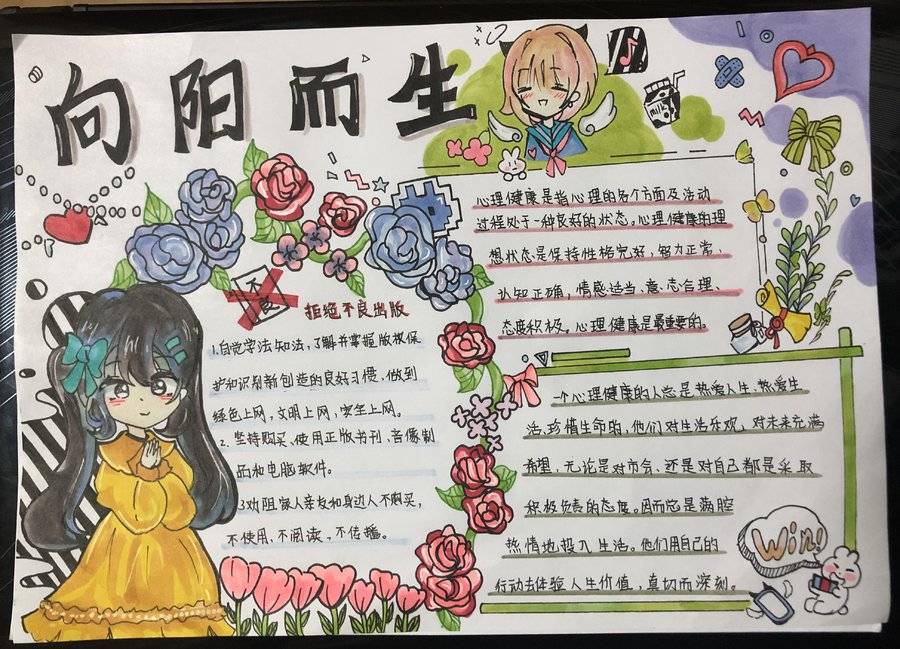 向阳而生
不良
拒绝不良出版
1.自觉学法知法,了解并掌握版权保
护知识和新创造的良好习惯,做到
绿色上网,文明上网,安全上网。
2.坚持购买、使用正版书刊、音像制
品和电脑软件。
3.劝阻家人亲友和身边人不购买,
不使用,不阅读、不传播。
心理健康是指心理的各个方面及活动
过程处于一种良好的状态。心理健康的理
想状态是保持性格完好、智力正常、
认知正确,情感适当、意志合理、
态度积极。心理健康是最重要的。
一个心理健康的人总是热爱人生,热爱生
活,珍惜生命的,他们对生活乐观,对未来充满
希望,无论是对市会、还是对自己都是采取
积极负责的态度。因而总是满腔
热情地投入生活。他们用自己的
行动去体验人生价值,真切而深刻。
Win!